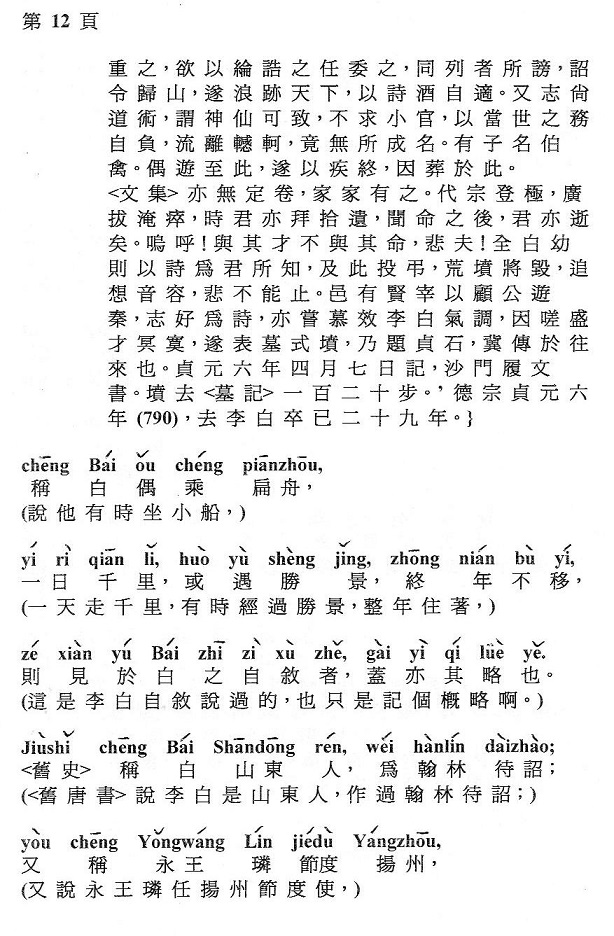 第 12 頁
重之，欲以綸誥之任委之，同列者所謗，詔
令歸山，遂浪跡天下，以詩酒自適。又志尙
道術，謂神仙可致，不求小官，以當世之務
自負，流離轗軻，竟無所成名。有子名伯
禽。偶遊至此，遂以疾終，因葬於此。
<文集> 亦無定卷，家家有之。代宗登極，廣
拔淹瘁，時君亦拜拾遺，聞命之後，君亦逝
矣。嗚呼！與其才不與其命，悲夫！全白幼
則以詩爲君所知，及此投弔，荒墳將毀，追
想音容，悲不能止。邑有賢宰以顧公遊
秦，志好爲詩，亦嘗慕效李白氣調，因嗟盛
才冥寞，遂表墓式墳，乃題貞石，冀傳於往
來也。貞元六年四月七日記，沙門履文
書。墳去 <墓記> 一百二十步。’ 德宗貞元六
年 (790)，去李白卒已二十九年。}
chēng Bái ǒu chéng piānzhōu,
稱 白 偶 乘 扁舟，
(說他有時坐小船，)
yí rì qiān lǐ, huò yù shèng jǐng, zhōng nián bù yí,
一日千里，或遇勝景，終年不移，
(一天走千里，有時經過勝景，整年住著，)
zé xiàn yú Bái zhī zì xù zhě, gài yì qí lüè yě.
則見於白之自敘者，蓋亦其略也。
(這是李白自敘說過的，也只是記個概略啊。)
Jiùshǐ chēng Bái Shāndōng rén, wéi hànlín dàizhào;
<舊史> 稱 白 山東 人，爲翰林待詔；
(<舊唐書> 說李白是山東人，作過翰林待詔；)
yòu chēng Yǒngwáng Lín jiédù Yángzhōu,
又 稱 永王 璘 節度 揚州，
(又說永王璘任揚州節度使，)